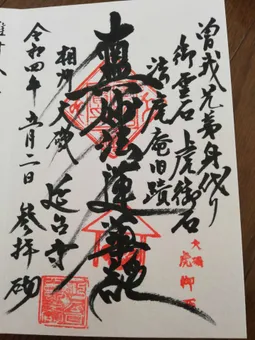 曽我兄弟身代り
御霊石 虎御石
法虎庵旧蹟
南無妙法蓮華経
相州大磯 延台寺
令和四年五月二日 参拝砌
大磯
虎御石